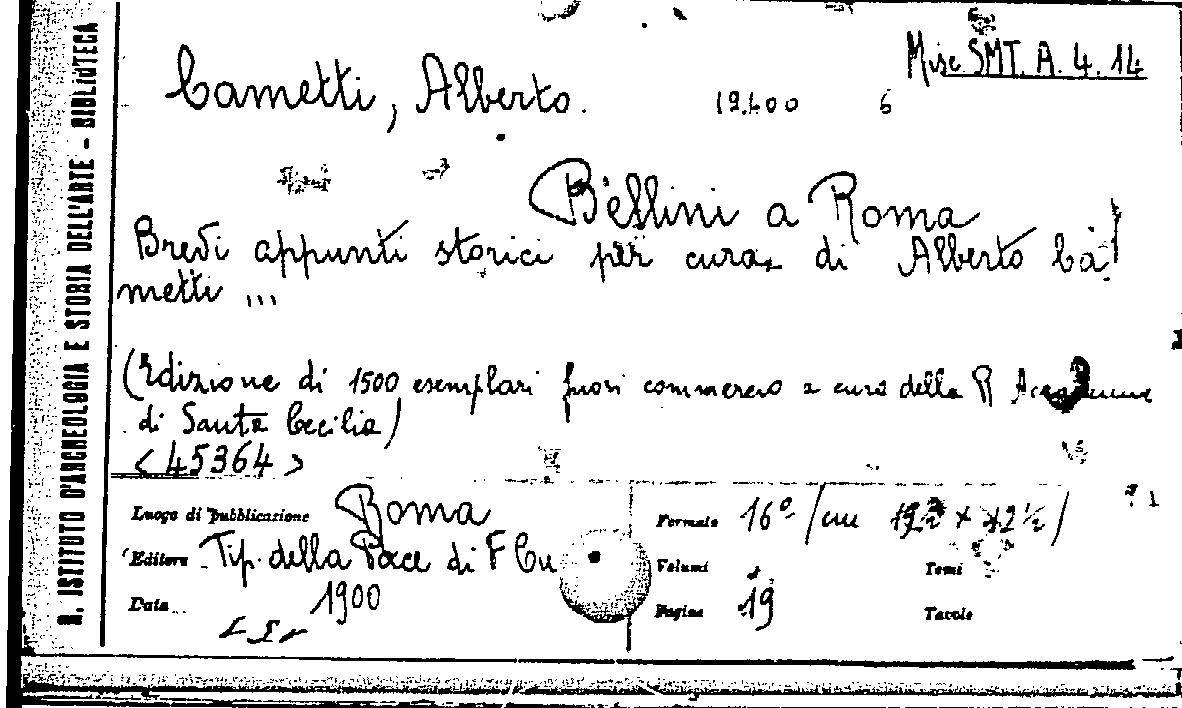 R. ISTITUTO D'ARCHEOLOGIA E STORIA DELL'ARTE - BIBLIOTECA
Misc SMT. A. 4. 14
Cametti, Alberto.
6
Bellini a Roma
Brevi appunti storici per cura di Alberto Ca
metti ...
(Edizione di 1500 esemplari fuori commercio a cura della R Accademia
di Santa Cecilia)
<45364>
Luogo di pubblicazione Roma
Formato 16° / cm × 12 ½ /
Editore Tip. della Pace di F Cu
Volumi
Tomi
Data 1900
Pagine 19
Tavole